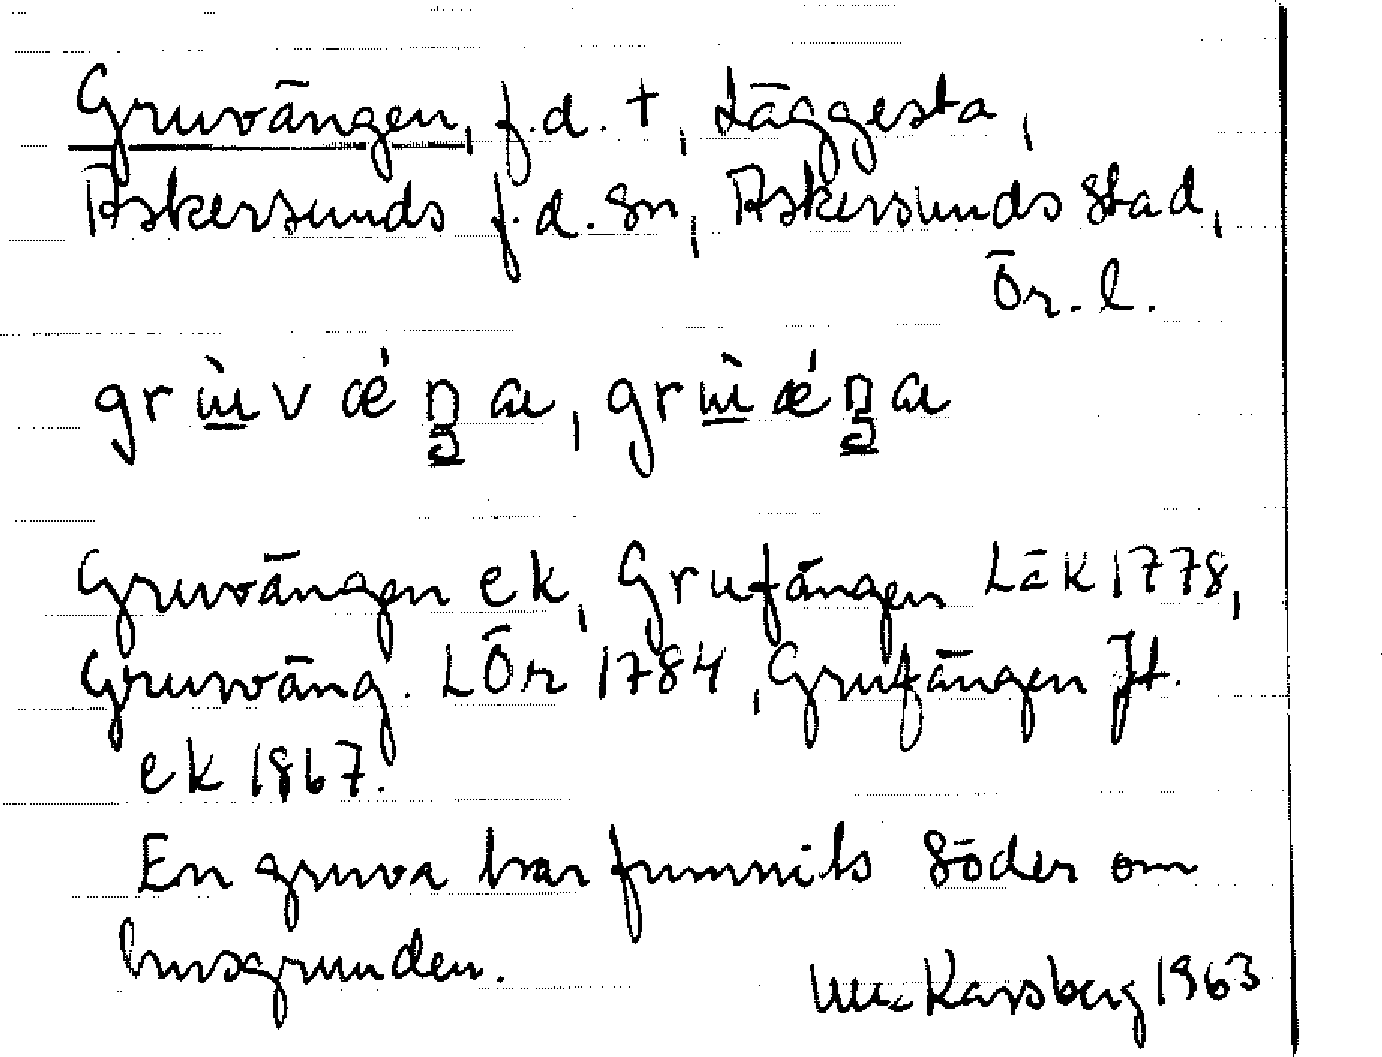 Gruvängen, f.d. t, Läggesta,
Askersunds f.d. sn, Askersunds stad,
Ör. l.
Gruvängen ek, Grufängen LÄK 1778,
Gruväng. LÖr 1784, Grufängen Jt.
ek 1867.
En gruva har funnits söder om
husgrunden.
Karsberg 1963